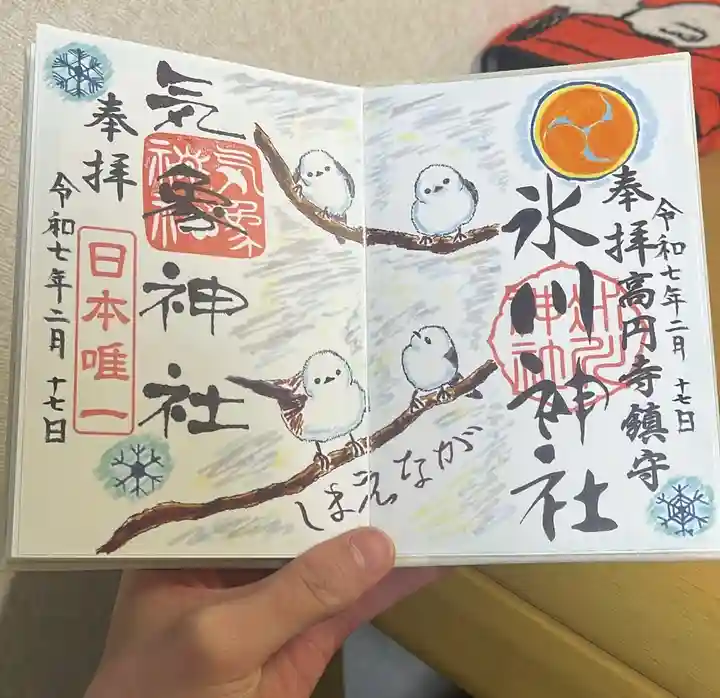 氷川神社
奉拝
高円寺鎮守
令和七年二月十七日
しまえなが
気象神社
気象神社
日本唯一
奉拝
令和七年二月十七日